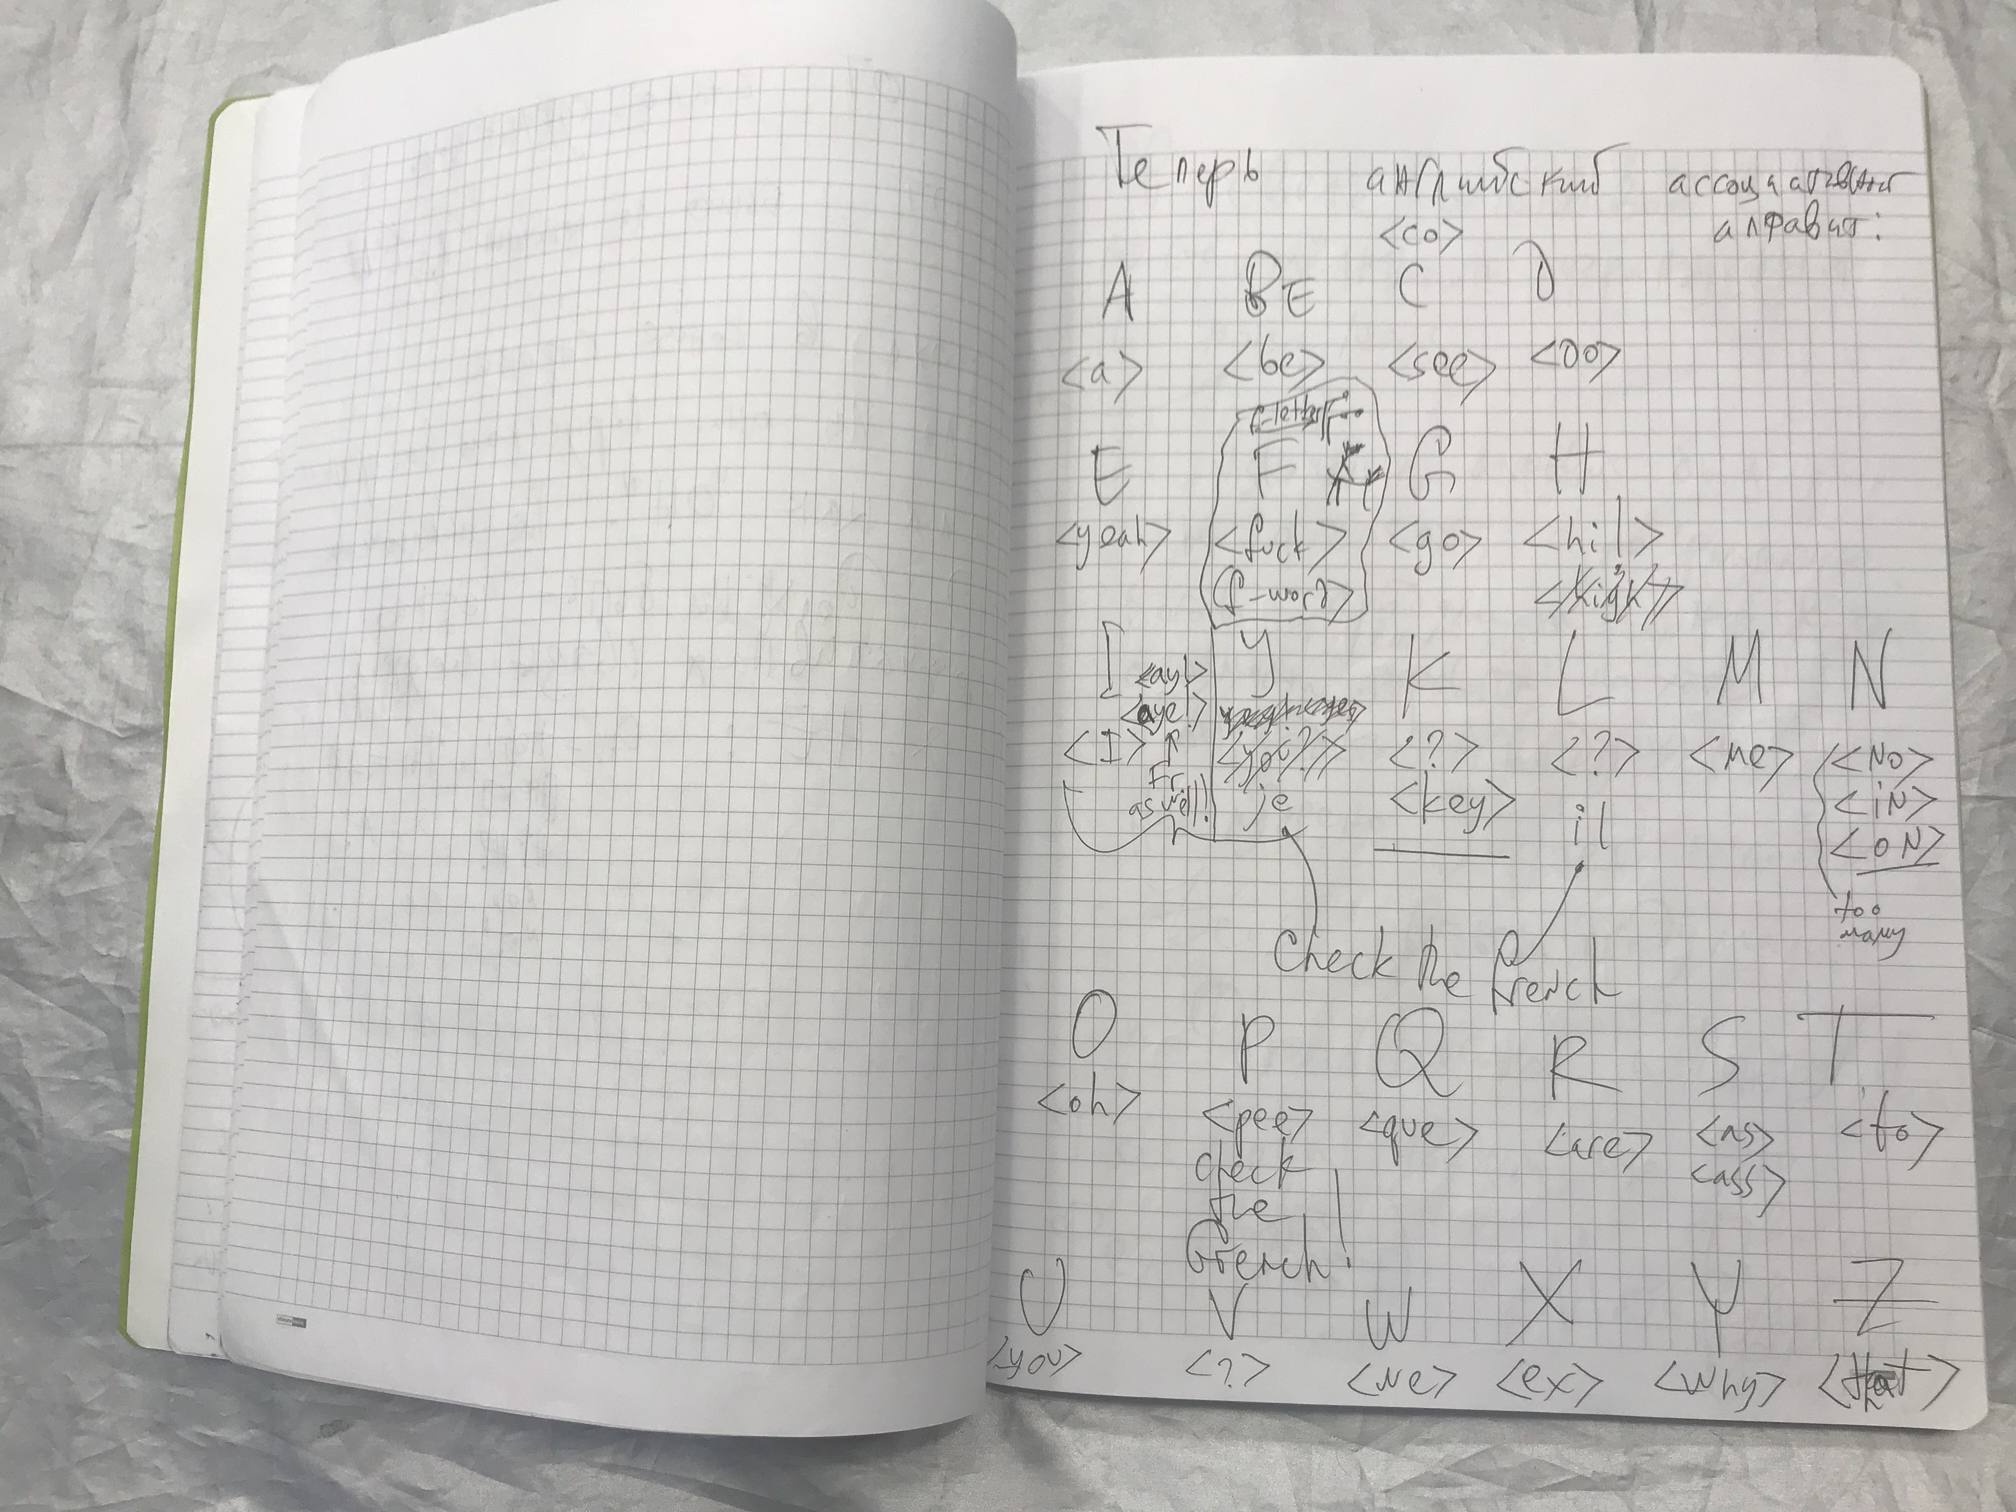 Теперь английский ассоциативный
алфавит:
<co>
A BE C D
<a> <be> <see> <do>
f-letter
E F G H
<yeah> <fuck> <go> <hi!>
(f-word)
I <ay!> y K L M N
<aye!>
<I> <you?> <?> <?> <me> <No>
Fr. as well! je <key> il <iN>
<oN>
too
many
Check the French
O P Q R S T
<oh> <pee> <que> <are> <as> <to>
check <ass>
the
French!
U V W X Y Z
<you> <?> <we> <ex> <why> <that>